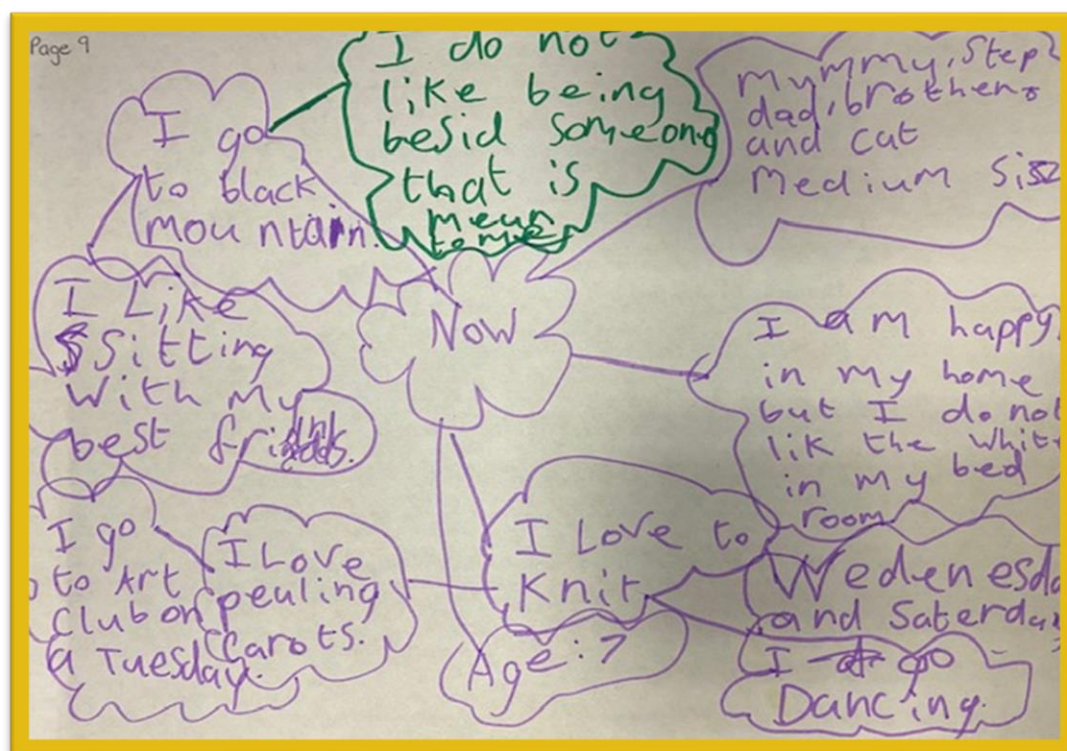 Page 9
I do not
like being
besid someone
that is
mean
to me
I go
to black
mountain.
Mummy, Step
dad, brothers
and cat
Medium Sis
Now
I Like
Sitting
With My
best
I am happy
in my home
but I do not
lik the Whit
in my bed
room
I go
to Art
Club on
a Tuesday.
I Love
peuling
Carots.
I Love to
Knit
Age: 7
Wedenesda
and Saterday
I go
Dancing.